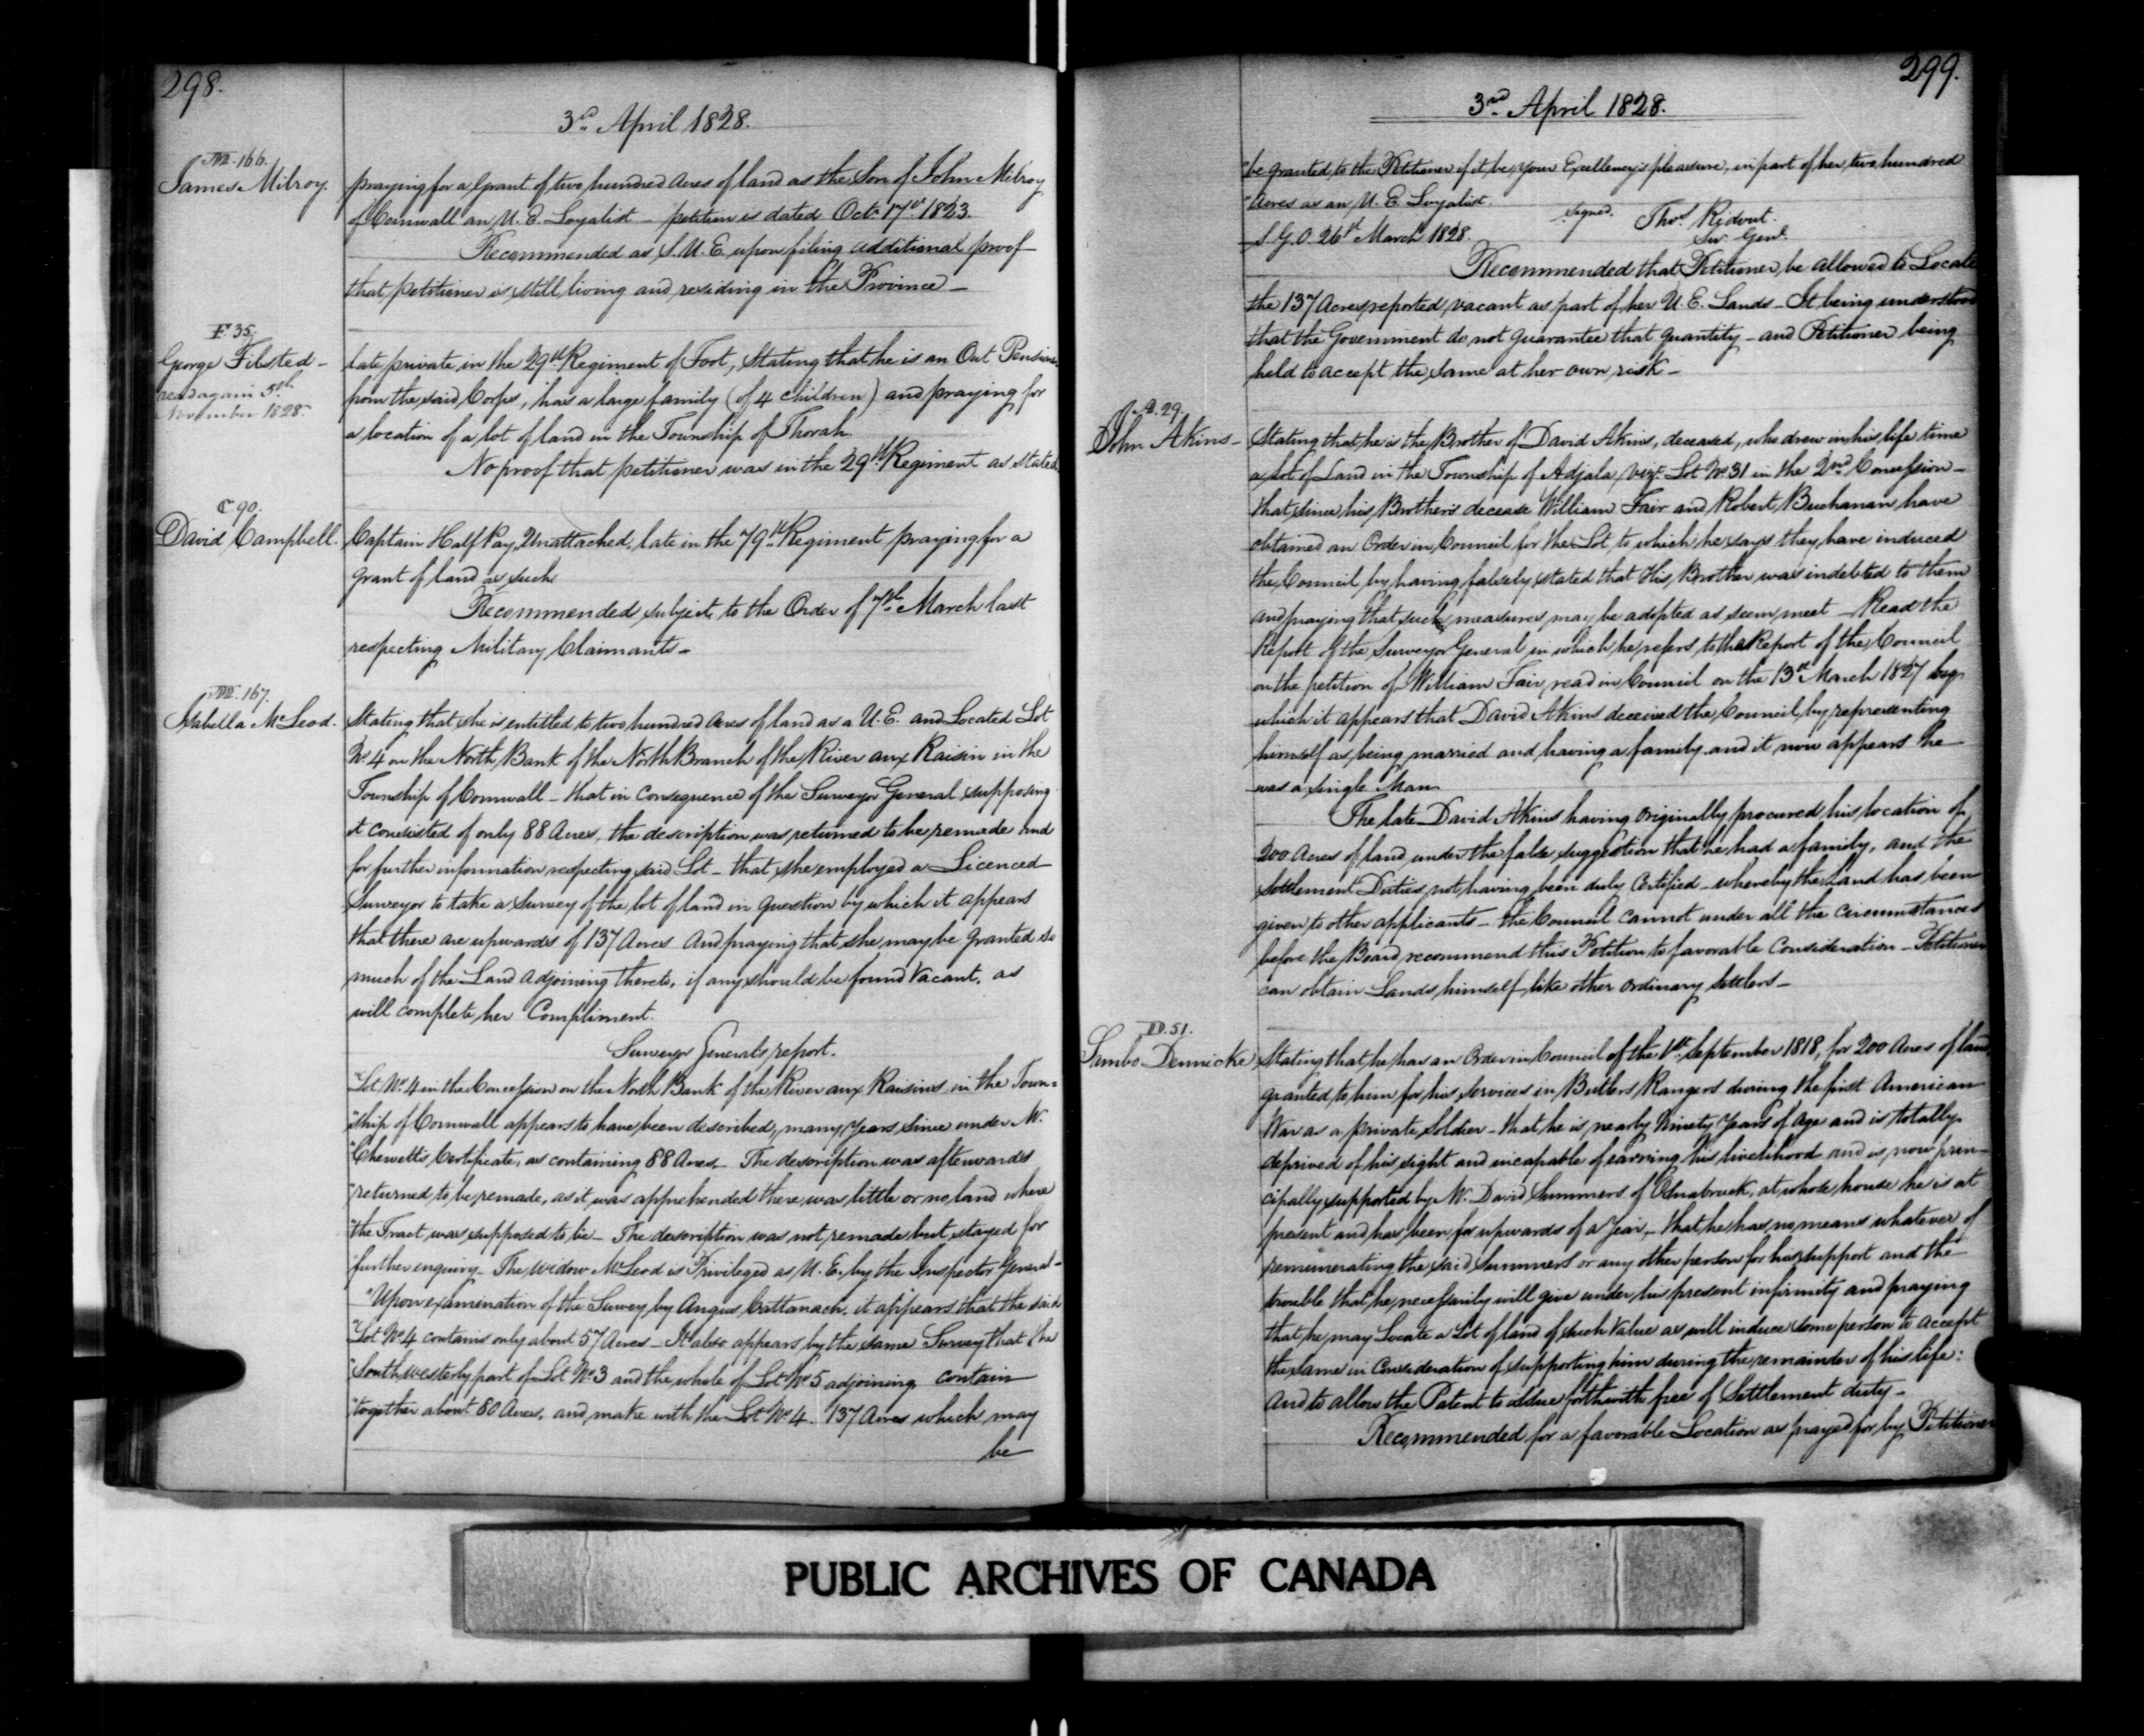 298.
3rd April 1828.
M. 166.
James Milroy.
praying for a Grant of two hundred Acres of land as the Son of John Milroy
of Cornwall an U. E. Loyalist – petition is dated Octr 17th 1823.
Recommended as S. U. E. upon filing additional proof
that petitioner is still living and residing in the Province –
F 35.
George Filsted –
read again 5th
November 1828.
late private in the 29th Regiment of Foot, Stating that he is an Out Pensioner
from the said Corps, has a large family (of 4 children) and praying for
a location of a lot of land in the Township of Thorah
No proof that petitioner was in the 29th Regiment as stated
C 90.
David Campbell.
Captain Half Pay, Unattached, late in the 79th Regiment praying for a
grant of land as such
Recommended subject to the Order of 7th March last
respecting Military Claimants –
M. 167.
Isabella McLeod.
Stating that she is entitled to two hundred Acres of land as a U. E. and Located Lot
No 4 on the North Bank of the North Branch of the River aux Raisin in the
Township of Cornwall – that in consequence of the Surveyor General supposing
it consisted of only 88 Acres, the description was returned to be remade and
for further information respecting said Lot – that she employed a Licenced
Surveyor to take a Survey of the lot of land in question by which it appears
that there are upwards of 137 Acres And praying that she may be granted so
much of the Land adjoining thereto, if any should be found Vacant, as
will complete her Compliment.
Surveyor Generals report.
"Lot No 4 in the Concession on the North Bank of the River aux Raisins in the Town=
"ship of Cornwall appears to have been described, many years since under Mr.
"Chewett's Certificate, as containing 88 Acres – The description was afterwards
"returned to be remade, as it was apprehended there was little or no land where
"the Tract was supposed to lie – The description was not remade but stayed for
"further enquiry – The widow McLeod is Privileged as U. E. by the Inspector General –
"Upon examination of the Survey by Angus Cattanach, it appears that the said
"Lot No 4 contains only about 57 Acres – It also appears by the same Survey that the
"South westerly part of Lot No 3 and the whole of Lot No 5 adjoining contain
"together about 80 Acres, and make with the Lot No 4 137 Acres which may
be
299.
3rd April 1828.
"be granted to the Petitioner if it be your Excellency's pleasure, in part of her two hundred
"Acres as an U. E. Loyalist.
signed. Thos Ridout.
S. G. O. 26th March 1828.
Sur. Genl.
Recommended that Petitioner be allowed to Locate
the 137 Acres reported vacant as part of her U. E. Lands – It being understood
that the Government do not guarantee that quantity – and Petitioner being
held to accept the same at her own risk –
A. 29.
John Akins –
Stating that he is the Brother of David Akins, deceased, who drew in his life time
a Lot of Land in the Township of Adjala, vizt Lot No 31 in the 2nd Concession –
that since his Brother's decease William Fair and Robert Buchanan have
obtained an Order in Council for the Lot to which he says they have induced
the Council by having falsely stated that His Brother was indebted to them
and praying that such measures may be adopted as seem meet – Read the
Report of the Surveyor General in which he refers to the Report of the Council
on the petition of William Fair, read in Council on the 13th March 1827 by
which it appears that David Akins deceived the Council, by representing
himself as being married and having a family and it now appears he
was a single Man
The late David Akins having originally procured his location of
200 Acres of land under the false suggestion that he had a family, and the
Settlement Duties not having been duly Certified – whereby the Land has been
given to other applicants – the Council cannot under all the circumstances
before the Board recommend this Petition to favorable Consideration – Petitioner
can obtain Lands himself like other ordinary settlers –
D. 51.
Sambo Dennicke
Stating that he has an Order in Council of the 1st September 1818, for 200 Acres of land
granted to him for his services in Butlers Rangers during the first American
War as a private Soldier – that he is nearly Ninety years of Age and is totally
deprived of his sight and incapable of earning his livelihood and is now prin=
cipally supported by Mr. David Summers of Osnabruck, at whose house he is at
present and has been for upwards of a Year, – that he has no means whatever of
remunerating the said Summers or any other person for his support and the
trouble that he necessarily will give under his present infirmity and praying
that he may Locate a Lot of land of such Value as will induce some person to accept
the same in consideration of supporting him during the remainder of his life:
And to allow the Patent to issue forthwith free of Settlement duty –
Recommended for a favorable Location as prayed for by Petitioner
PUBLIC ARCHIVES OF CANADA